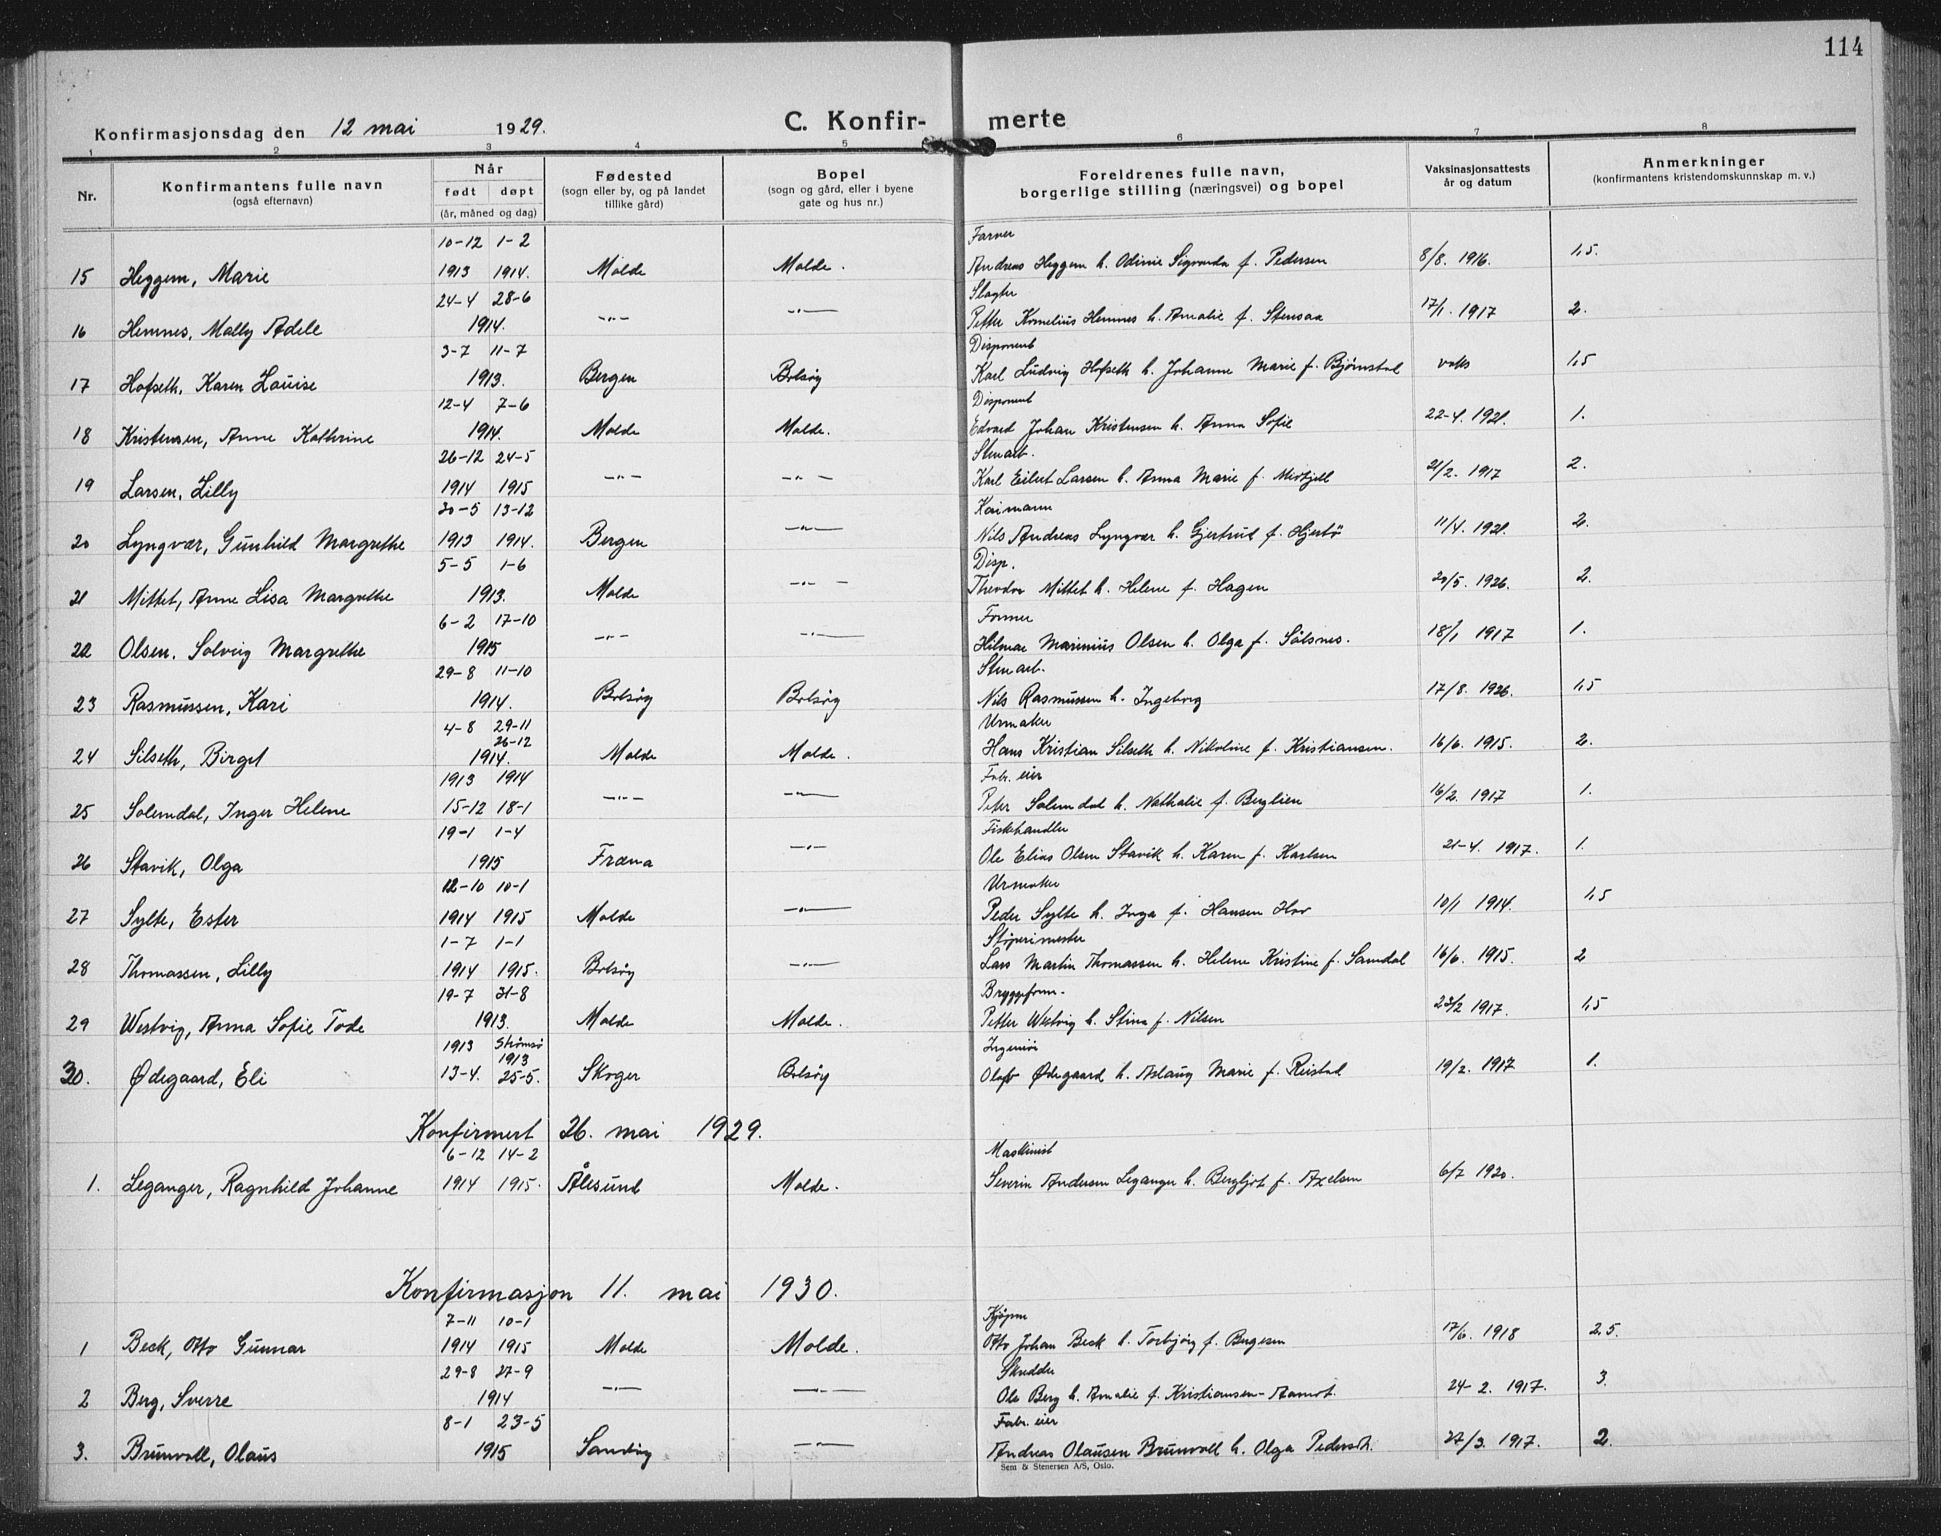 114
Konfirmasjonsdag den 12 mai 1929. C. Konfir- merte
1 2 3 4 5 6 7 8
Nr. Konfirmantens fulle navn (også efternavn) Når født døpt (år, måned og dag) Fødested (sogn eller by, og på landet tillike gård) Bopel (sogn og gård, eller i byene gate og hus nr.) Foreldrenes fulle navn, borgerlige stilling (næringsvei) og bopel Vaksinasjonsattests år og datum Anmerkninger (konfirmantens kristendomskunnskap m. v.)
10-12 1-2 Farver
15 Heggem, Marie 1913 1914. Molde Molde. Andreas Heggem h. Odinie Sigvarda f. Pedersen 8/8. 1916. 1,5.
24-4 28-6 Slagter
16 Hemnes, Mally Adele 1914. -"- -"- Petter Kornelius Hemnes h. Amalie f. Stensaa 17/1. 1917 2.
3-7 11-7 Disponent
17 Hofseth, Karen Louise 1913. Bergen Bolsøy Karl Ludvig Hofseth h. Johanne Marie f. Bjørnstad vaks 1,5
12-4 7-6 Disponent
18 Kristensen, Anne Kathrine 1914. Molde Molde. Edvard Johan Kristensen h. Anna Sofie 22-4. 1921. 1.
26-12 24-5 Stenarb.
19 Larsen, Lilly 1914 1915 -"- -"- Karl Eilert Larsen h. Anna Marie f. 21/2. 1917 2.
30-5 13-12 Kaimann
20 Lyngvær, Gunhild Margrethe 1913 1914. Bergen -"- Nils Andreas Lyngvær h. Gjertrud f. Hjertø 11/4. 1921. 2.
5-5 1-6 Disp.
21 Mittet, Anne Lisa Margrethe 1913. Molde -"- Theodor Mittet h. Helene f. Hagen 20/5. 1926. 2.
6-2 17-10 Former
22 Olsen, Solveig Margrethe 1915 -"- -"- Hilmar Marinius Olsen h. Olga f. Sølsnes. 18/1 1917 1.
29-8 11-10 Stenarb.
23 Rasmussen, Kari 1914. Bolsøy Bolsøy Nils Rasmussen h. Ingeborg 17/8. 1926. 1,5
4-8 29-11 26-12 Urmaker
24 Silseth, Birget 1914. Molde Molde. Hans Kristian Silseth h. Nikoline f. Kristiansen. 16/6. 1915. 2.
1913 1914 Fabr. eier
25 Solemdal, Inger Helene 15-12 18-1 -"- -"- Peter Solemdal h. Nathalie f. Berglien 16/2. 1917 1.
19-1 1-4 Fiskehandler
26 Stavik, Olga 1915 Fræna -"- Ole Elias Olsen Stavik h. Karen f. Karlsen 21-4. 1917. 1.
12-10 10-1 Urmaker
27 Sylte, Ester 1914 1915 Molde -"- Peder Sylte h. Inga f. Hansen Hov 10/1 1914. 1,5
1-7 1-1 Støperimester
28 Thomassen, Lilly 1914 1915. Bolsøy -"- Lars Martin Thomassen h. Helene Kristine f. Samdal 16/6. 1915. 2
19-7 31-8 Bryggeform.
29 Westvig, Anna Sofie Tode 1913. Molde Molde. Petter Westvig h. Stina f. Nilsen 23/2 1917. 1,5
1913 Strømsø 1913 Ingeniør
30. Ødegaard, Eli 13-4. 25-5. Skoger Bolsøy Olaf Ødegaard h. Aslaug Marie f. Reistad 19/2. 1917 1.
Konfirmert 26. mai 1929.
6-12 14-2 Maskinist
1. Leganger, Ragnhild Johanne 1914 1915. Ålesund Molde. Severin Andersen Leganger h. Bergljot f. Axelsen 6/7 1920.
Konfirmasjon 11. mai 1930.
7-11 10-1 Kjøpm
1 Beck, Otto Gunnar 1914 1915 Molde Molde. Otto Johan Beck h. Torbjørg f. Bergesen 17/6. 1918 2,5.
29-8 27-9 Skredder
2 Berg, Sverre 1914 -"- -"- Ole Berg h. Amalie f. Kristiansen-Aamot. 24-2. 1917. 3.
8-1 23-5 Fabr. eier
3. Brunvoll, Olaus 1915 Sandøy -"- Andreas Olausen Brunvoll h. Olga 27/3. 1917. 2.
Sem & Stenersen A/S, Oslo.